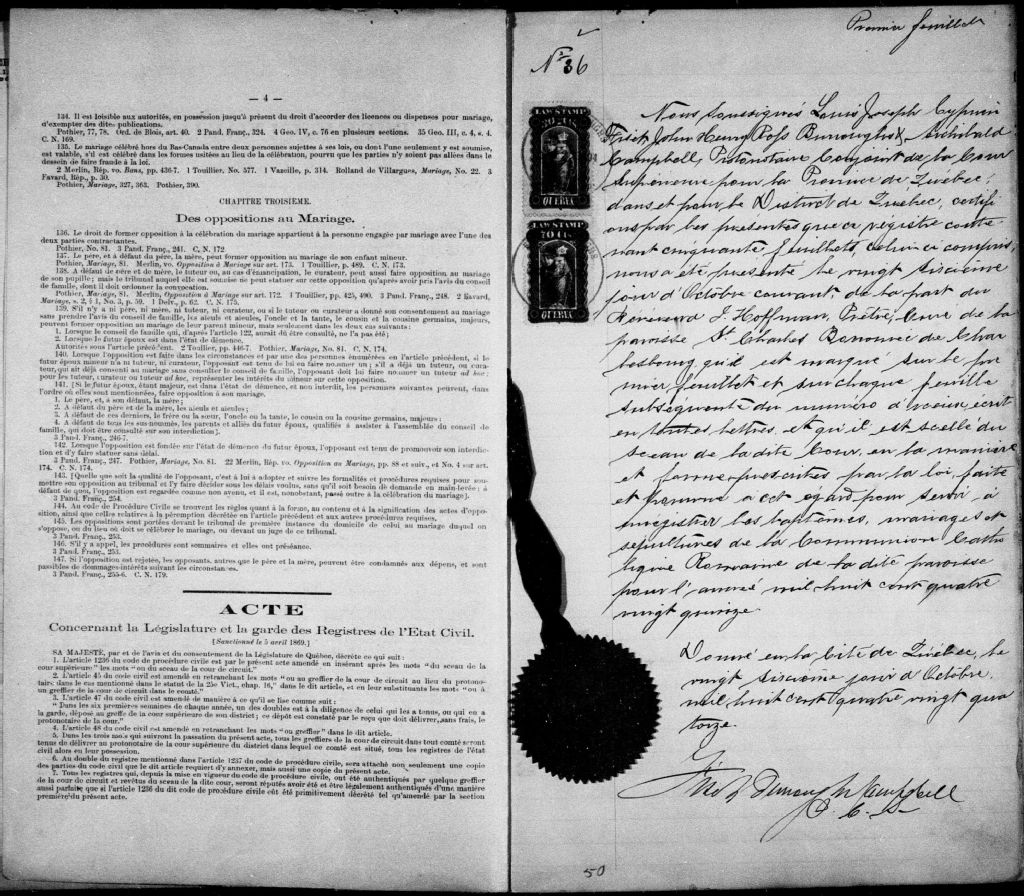 — 4 —
134. Il est loisible aux autorités, en possession jusqu'à présent du droit d'accorder des licences ou dispenses pour mariage,
d'exempter des dites publications.
Pothier, 77, 78. Ord. de Blois, art. 40. 2 Pand. Franç., 324. 4 Geo. IV, c. 76 en plusieurs sections. 35 Geo. III, c. 4, s. 4.
C. N. 169.
135. Le mariage célébré hors du Bas-Canada entre deux personnes sujettes à ses lois, ou dont l'une seulement y est soumise,
est valable, s'il est célébré dans les formes usitées au lieu de la célébration, pourvu que les parties n'y soient pas allées dans le
dessein de faire fraude à la loi.
2 Merlin, Rép. vo. Bans, pp. 436-7. 1 Touillier, No. 577. 1 Vazeille, p. 314. Rolland de Villargues, Mariage, No. 22. 3
Favard, Rép., p. 30.
Pothier, Mariage, 327, 363. Pothier, 390.
CHAPITRE TROISIEME.
Des oppositions au Mariage.
136. Le droit de former opposition à la célébration du mariage appartient à la personne engagée par mariage avec l'une des
deux parties contractantes.
Pothier, No. 81. 3 Pand. Franç., 241. C. N. 172.
137. Le père, et à défaut du père, la mère, peut former opposition au mariage de son enfant mineur.
Pothier, Mariage, 81. Merlin, vo. Opposition à Mariage sur art. 173. 1 Touillier, p. 489. C. N. 173.
138. A défaut de père et de mère, le tuteur ou, au cas d'émancipation, le curateur, peut aussi faire opposition au mariage
de son pupille; mais le tribunal auquel elle est soumise ne peut statuer sur cette opposition qu'après avoir pris l'avis du conseil
de famille, dont il doit ordonner la convocation.
Pothier, Mariage, 81. Merlin, Opposition à Mariage sur art. 172. 1 Touillier, pp. 425, 490. 3 Pand. Franç., 248. 2 Favard,
Mariage, s. 2, § 1, No. 3, p. 59. 1 Delv., p. 62. C. N. 175.
139. S'il n'y a ni père, ni mère, ni tuteur, ni curateur, ou si le tuteur ou curateur a donné son consentement au mariage
sans prendre l'avis du conseil de famille, les aïeuls et aïeules, l'oncle et la tante, le cousin et la cousine germains, majeurs,
peuvent former opposition au mariage de leur parent mineur, mais seulement dans les deux cas suivants:
1. Lorsque le conseil de famille qui, d'après l'article 122, aurait dû être consulté, ne l'a pas été;
2. Lorsque le futur époux est dans l'état de démence.
Autorités sous l'article précédent. 2 Touillier, pp. 446-7. Pothier, Mariage, No. 81. C. N. 174.
140. Lorsque l'opposition est faite dans les circonstances et par une des personnes énumérées en l'article précédent, si le
futur époux mineur n'a ni tuteur, ni curateur, l'opposant est tenu de lui en faire nommer un; s'il a déjà un tuteur, ou cura-
teur, qui ait déjà consenti au mariage sans consulter le conseil de famille, l'opposant doit lui faire nommer un tuteur ad hoc;
pour les tuteur, curateur ou tuteur ad hoc, représenter les intérêts du mineur sur cette opposition.
141. [Si le futur époux, étant majeur, est dans l'état de démence, et non interdit, les personnes suivantes peuvent, dans
l'ordre où elles sont mentionnées, faire opposition à son mariage.
1. Le père, et, à son défaut, la mère;
2. A défaut du père et de la mère, les aïeuls et aïeules;
3. A défaut de ces derniers, le frère ou la sœur, l'oncle ou la tante, le cousin ou la cousine germains, majeurs:
4. A défaut de tous les sus-nommés, les parents et alliés du futur époux, qualifiés à assister à l'assemblée du conseil de
famille, qui doit être consulté sur son interdiction].
3 Pand. Franç., 246-7.
142. Lorsque l'opposition est fondée sur l'état de démence du futur époux, l'opposant est tenu de promouvoir son interdic-
tion et d'y faire statuer sans délai.
3 Pand. Franç., 247. Pothier, Mariage, No. 81. 22 Merlin, Rép. vo. Opposition au Mariage, pp. 88 et suiv., et No. 4 sur art.
174. C. N. 174.
143. [Quelle que soit la qualité de l'opposant, c'est à lui à adopter et suivre les formalités et procédures requises pour sou-
mettre son opposition au tribunal et l'y faire décider sous les délais voulus, sans qu'il soit besoin de demande en main-levée; à
défaut de quoi, l'opposition est regardée comme non avenu, et il est, nonobstant, passé outre à la célébration du mariage].
3 Pand. Franç., 254.
144. Au code de Procédure Civile se trouvent les règles quant à la forme, au contenu et à la signification des actes d'oppo-
sition, ainsi que celles relatives à la péremption décrétée en l'article précédent et aux autres procédures requises.
145. Les oppositions sont portées devant le tribunal de première instance du domicile de celui au mariage duquel on
s'oppose, ou du lieu où doit se célébrer le mariage, ou devant un juge de ce tribunal.
3 Pand. Franç., 253.
146. S'il y a appel, les procédures sont sommaires et elles ont préséance.
3 Pand. Franç., 253.
147. Si l'opposition est rejetée, les opposants, autres que le père et la mère, peuvent être condamnés aux dépens, et sont
passibles de dommages-intérêts suivant les circonstances.
3 Pand. Franç., 255-6. C. N. 179.
ACTE
Concernant la Législature et la garde des Registres de l'Etat Civil.
[Sanctionné le 5 avril 1869.]
SA MAJESTÉ, par et de l'avis et du consentement de la Législature de Québec, décrète ce qui suit:
1. L'article 1236 du code de procédure civile est par le présent acte amendé en insérant après les mots "du sceau de la
cour supérieure" les mots "ou du sceau de la cour de circuit."
2. L'article 45 du code civil est amendé en retranchant les mots "ou au greffier de la cour de circuit au lieu du protono-
taire dans le cas mentionné dans le statut de la 25e Vict., chap. 16," dans le dit article, et en leur substituants les mots "ou à
un greffier de la cour de circuit dans le comté."
3. L'article 47 du code civil est amendé de manière à ce qu'il se lise comme suit:
"Dans les six premières semaines de chaque année, un des doubles est à la diligence de celui qui les a tenus, ou qui en a
la garde, déposé au greffe de la cour supérieure de son district; ce dépôt est constaté par le reçu que doit délivrer, sans frais, le
protonotaire de la cour."
4. L'article 48 du code civil est amendé en retranchant les mots "ou greffier" dans le dit article.
5. Dans les trois mois qui suivront la passation du présent acte, tous les greffiers de la cour de circuit dans tout comté seront
tenus de délivrer au protonotaire de la cour supérieure du district dans lequel ce comté est situé, tous les registres de l'état
civil alors en leur possession.
6. Au double du registre mentionné dans l'article 1237 du code de procédure civile, sera attaché non seulement une copie
des parties du code civil que le dit article requiert d'y annexer, mais aussi une copie du présent acte.
7. Tous les registres qui, depuis la mise en vigueur du code de procédure civile, ont été authentiqués par quelque greffier
de la cour de circuit et revêtus du sceau de la dite cour, seront réputés avoir été et être légalement authentiqués d'une manière
aussi parfaite que si l'article 1236 du dit code de procédure civile eût été primitivement décrété tel qu'amendé par la section
première du présent acte.
Premier feuillet
No 36
LAW STAMP
QUEBEC
LAW STAMP
70 Cts.
QUEBEC
Nous soussignés Louis Joseph Cyprien
Fiset, John Henry Ross Burroughs & Archibald
Campbell, Protonotaire Conjoint de la Cour
Supérieure pour la Province de Québec,
dans et pour le District de Québec, certifi
ons par les présentes que ce régistre conte
nant cinquante feuillets celui ci compris,
nous a été présenté le vingt sixième
jour d'Octobre courant, de la part du
Révérend J. Hoffman, Prêtre, Curé de la
paroisse St. Charles Borromée de Char
lesbourg qu'il est marqué sur le pre
mier feuillet et sur chaque feuille
subséquente du numéro d'iceux écrit
en toutes lettres, et qu'il est scellé du
sceau de la dite Cour, en la manière
et forme prescrites par la loi faite
et pourvue à cet égard pour servir à
enregistrer les baptêmes, mariages et
sépultures de la Communion Catho
lique Romaine de la dite paroisse
pour l'année mil huit cent quatre
vingt quinze.
Donné en la Cité de Québec, le
vingt sixième jour d'Octobre
mil huit cent quatre vingt qua
torze.
Campbell
P. C. S.
50